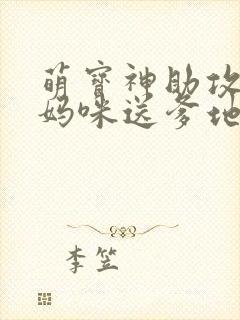 萌寶神助攻
媽咪送爹地
李笠